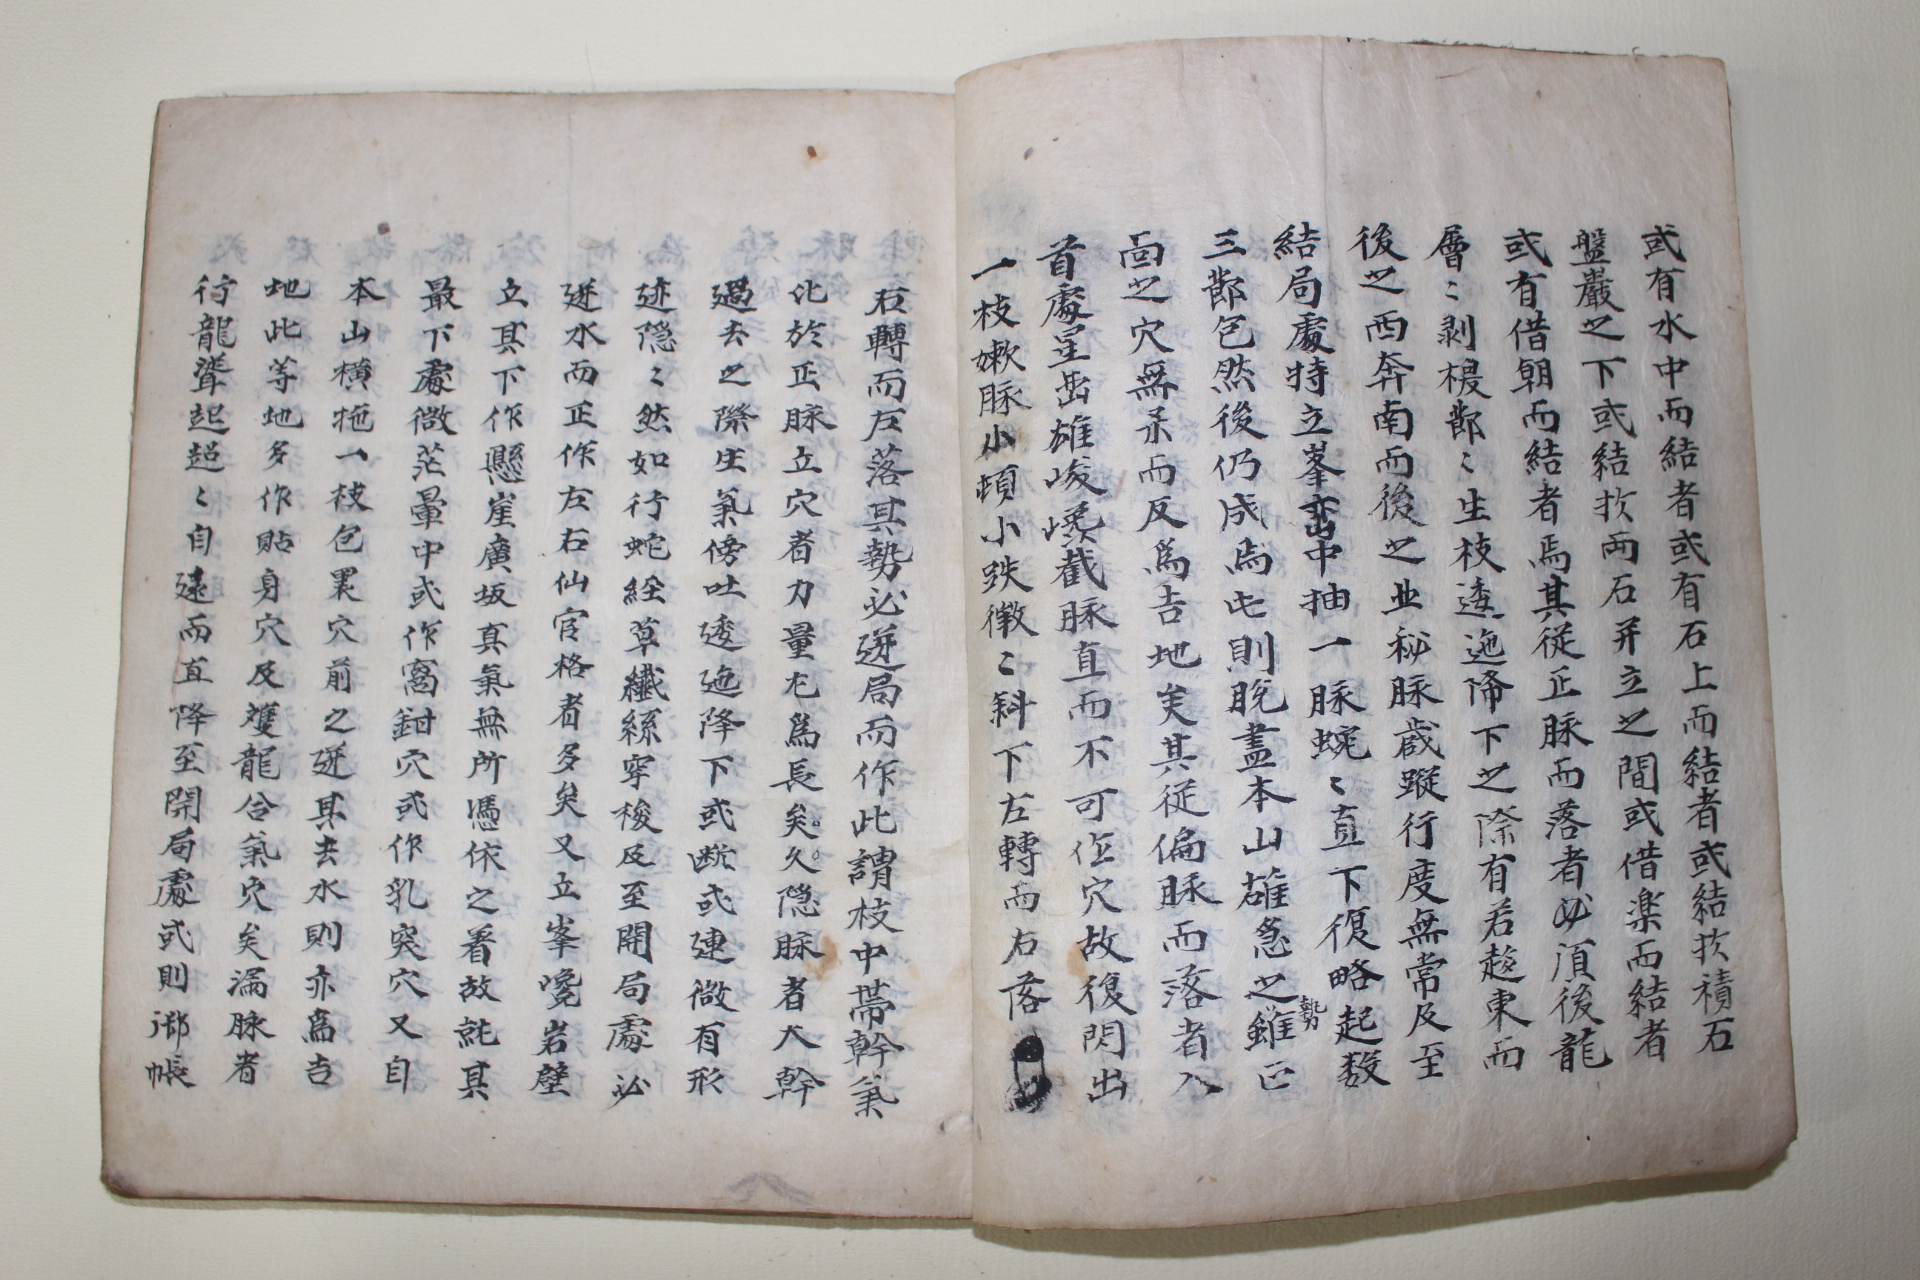 或有水中而結者或有石上而結者或結於積石
盤巖之下或結於両石并立之間或借楽而結者
或有借朝而結者焉其従正脉而落者必湏後龍
層〻剥棂鄣〻生枝逶迤降下之際有若趍東而
後之西奔南而後之北秘脉蔵蹤行度無常及至
結局處特立峯巒中抽一脉蜿〻直下復略起数
三鄣包然後仍成焉此則脱盡本山雄急之勢雖正
面之穴無杀而反爲吉地矣其従偏脉而落者入
首處星峦雄峻巉截脉直而不可立穴故復閃出
一枝嫰脉小頓小跌徴〻斜下左轉而右落
右轉而左落其勢必逆局而作此謂枝中帯幹氣
化於正脉立穴者力量尤爲長矣久隐脉者大幹
過去之際生氣傍吐逶迤降下或断或連微有形
迹隐〻然如行蛇經草纖絲穿梭及至開局處必
逆水而正作左右仙官格者多矣又立峯巉岩壁
立其下作懸崖廣坂真氣無所憑依之着故就其
最下處微茫暈中或作窩鉗穴或作乳突穴又自
本山横拖一枝包裹穴前之逆其去水則亦爲吉
地此等地多作貼身穴及雙龍合氣穴矣漏脉者
行龍聳起超〻自遠而直降至開局處或則御帳